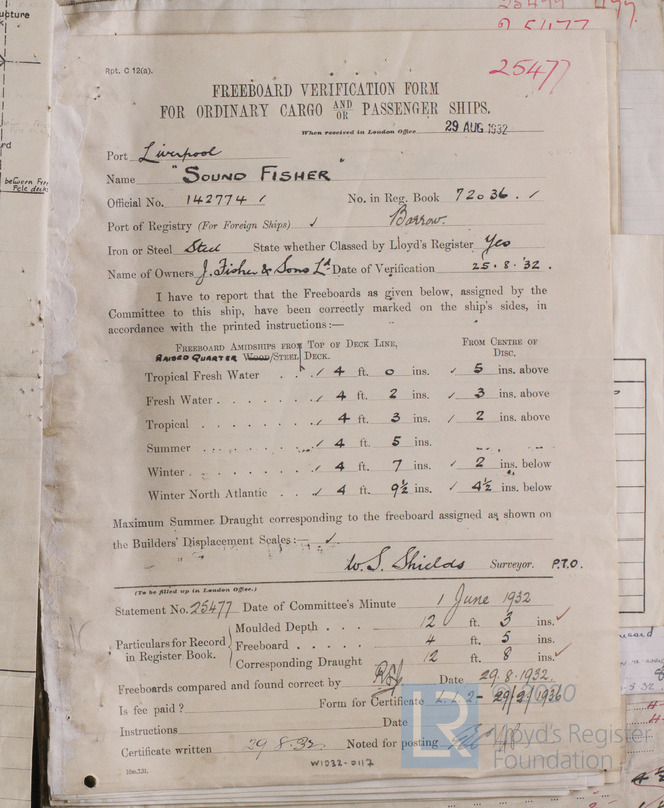 25477
Rpt. C 12(a).
25477
FREEBOARD VERIFICATION FORM
FOR ORDINARY CARGO AND/OR PASSENGER SHIPS.
When received in London Office 29 AUG 1932
Port Liverpool
Name "SOUND FISHER"
Official No. 142774 No. in Reg. Book 72036.
Port of Registry (For Foreign Ships) Barrow.
Iron or Steel Steel State whether Classed by Lloyd's Register Yes
Name of Owners J. Fisher & Sons Ld Date of Verification 25.8.'32.
I have to report that the Freeboards as given below, assigned by the
Committee to this ship, have been correctly marked on the ship's sides, in
accordance with the printed instructions:—
FREEBOARD AMIDSHIPS FROM TOP OF DECK LINE, FROM CENTRE OF
RAISED QUARTER WOOD/STEEL DECK. DISC.
Tropical Fresh Water . . ✓ 4 ft. 0 ins. ✓ 5 ins. above
Fresh Water . . . . . . ✓ 4 ft. 2 ins. ✓ 3 ins. above
Tropical . . . . . . . ✓ 4 ft. 3 ins. ✓ 2 ins. above
Summer . . . . . . . ✓ 4 ft. 5 ins.
Winter . . . . . . . ✓ 4 ft. 7 ins. ✓ 2 ins. below
Winter North Atlantic . . ✓ 4 ft. 9½ ins. ✓ 4½ ins. below
Maximum Summer Draught corresponding to the freeboard assigned as shown on
the Builders' Displacement Scales:— ✓
W. S. Shields Surveyor. P.T.O.
(To be filled up in London Office.)
Statement No. 25477 Date of Committee's Minute 1 June 1932
Particulars for Record in Register Book.
Moulded Depth . . . . 12 ft. 3 ins. ✓
Freeboard . . . . . 4 ft. 5 ins.
Corresponding Draught 12 ft. 8 ins. ✓
Freeboards compared and found correct by Date 29.8.1932.
Is fee paid? Form for Certificate L.L.2- 29/2/1936
Instructions Date
Certificate written 29.8.32 Noted for posting
10m,7,31.
W1032-0117
LR
Lloyd's Register
Foundation